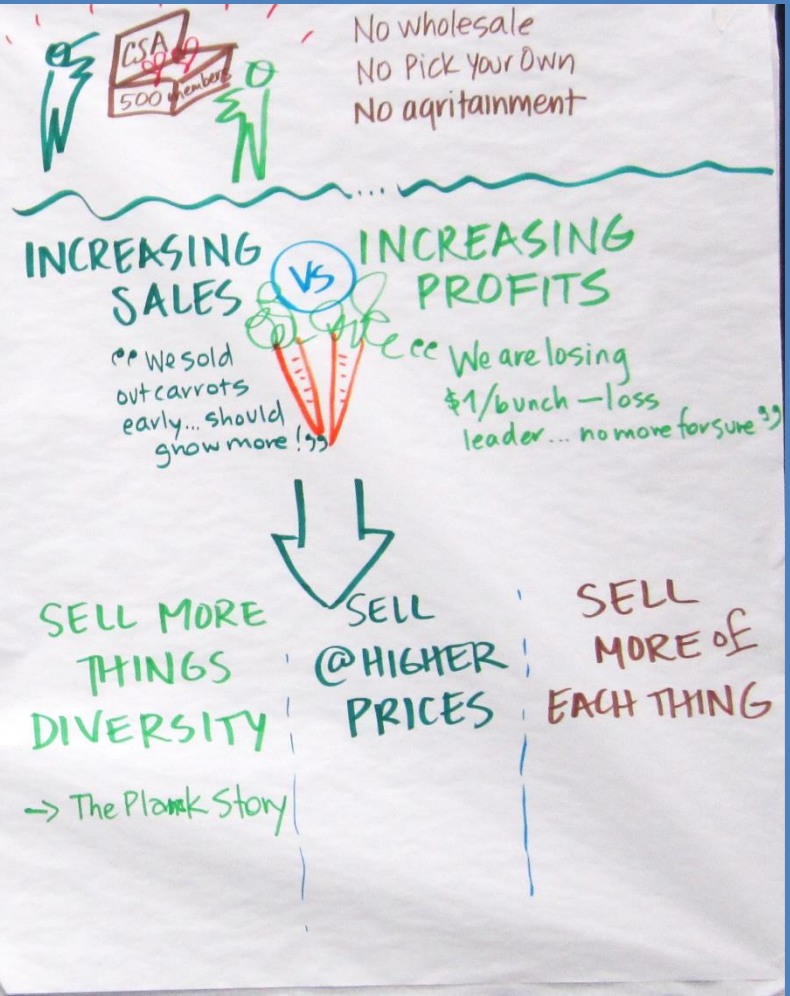 CSA
500 members
No wholesale
No Pick Your Own
No agritainment
...
INCREASING
SALES
VS
INCREASING
PROFITS
“We sold
out carrots
early... should
grow more!”
“We are losing
$1/bunch — loss
leader... no more for sure”
SELL MORE
THINGS
DIVERSITY
→ The Plank Story
SELL
@ HIGHER
PRICES
SELL
MORE OF
EACH THING